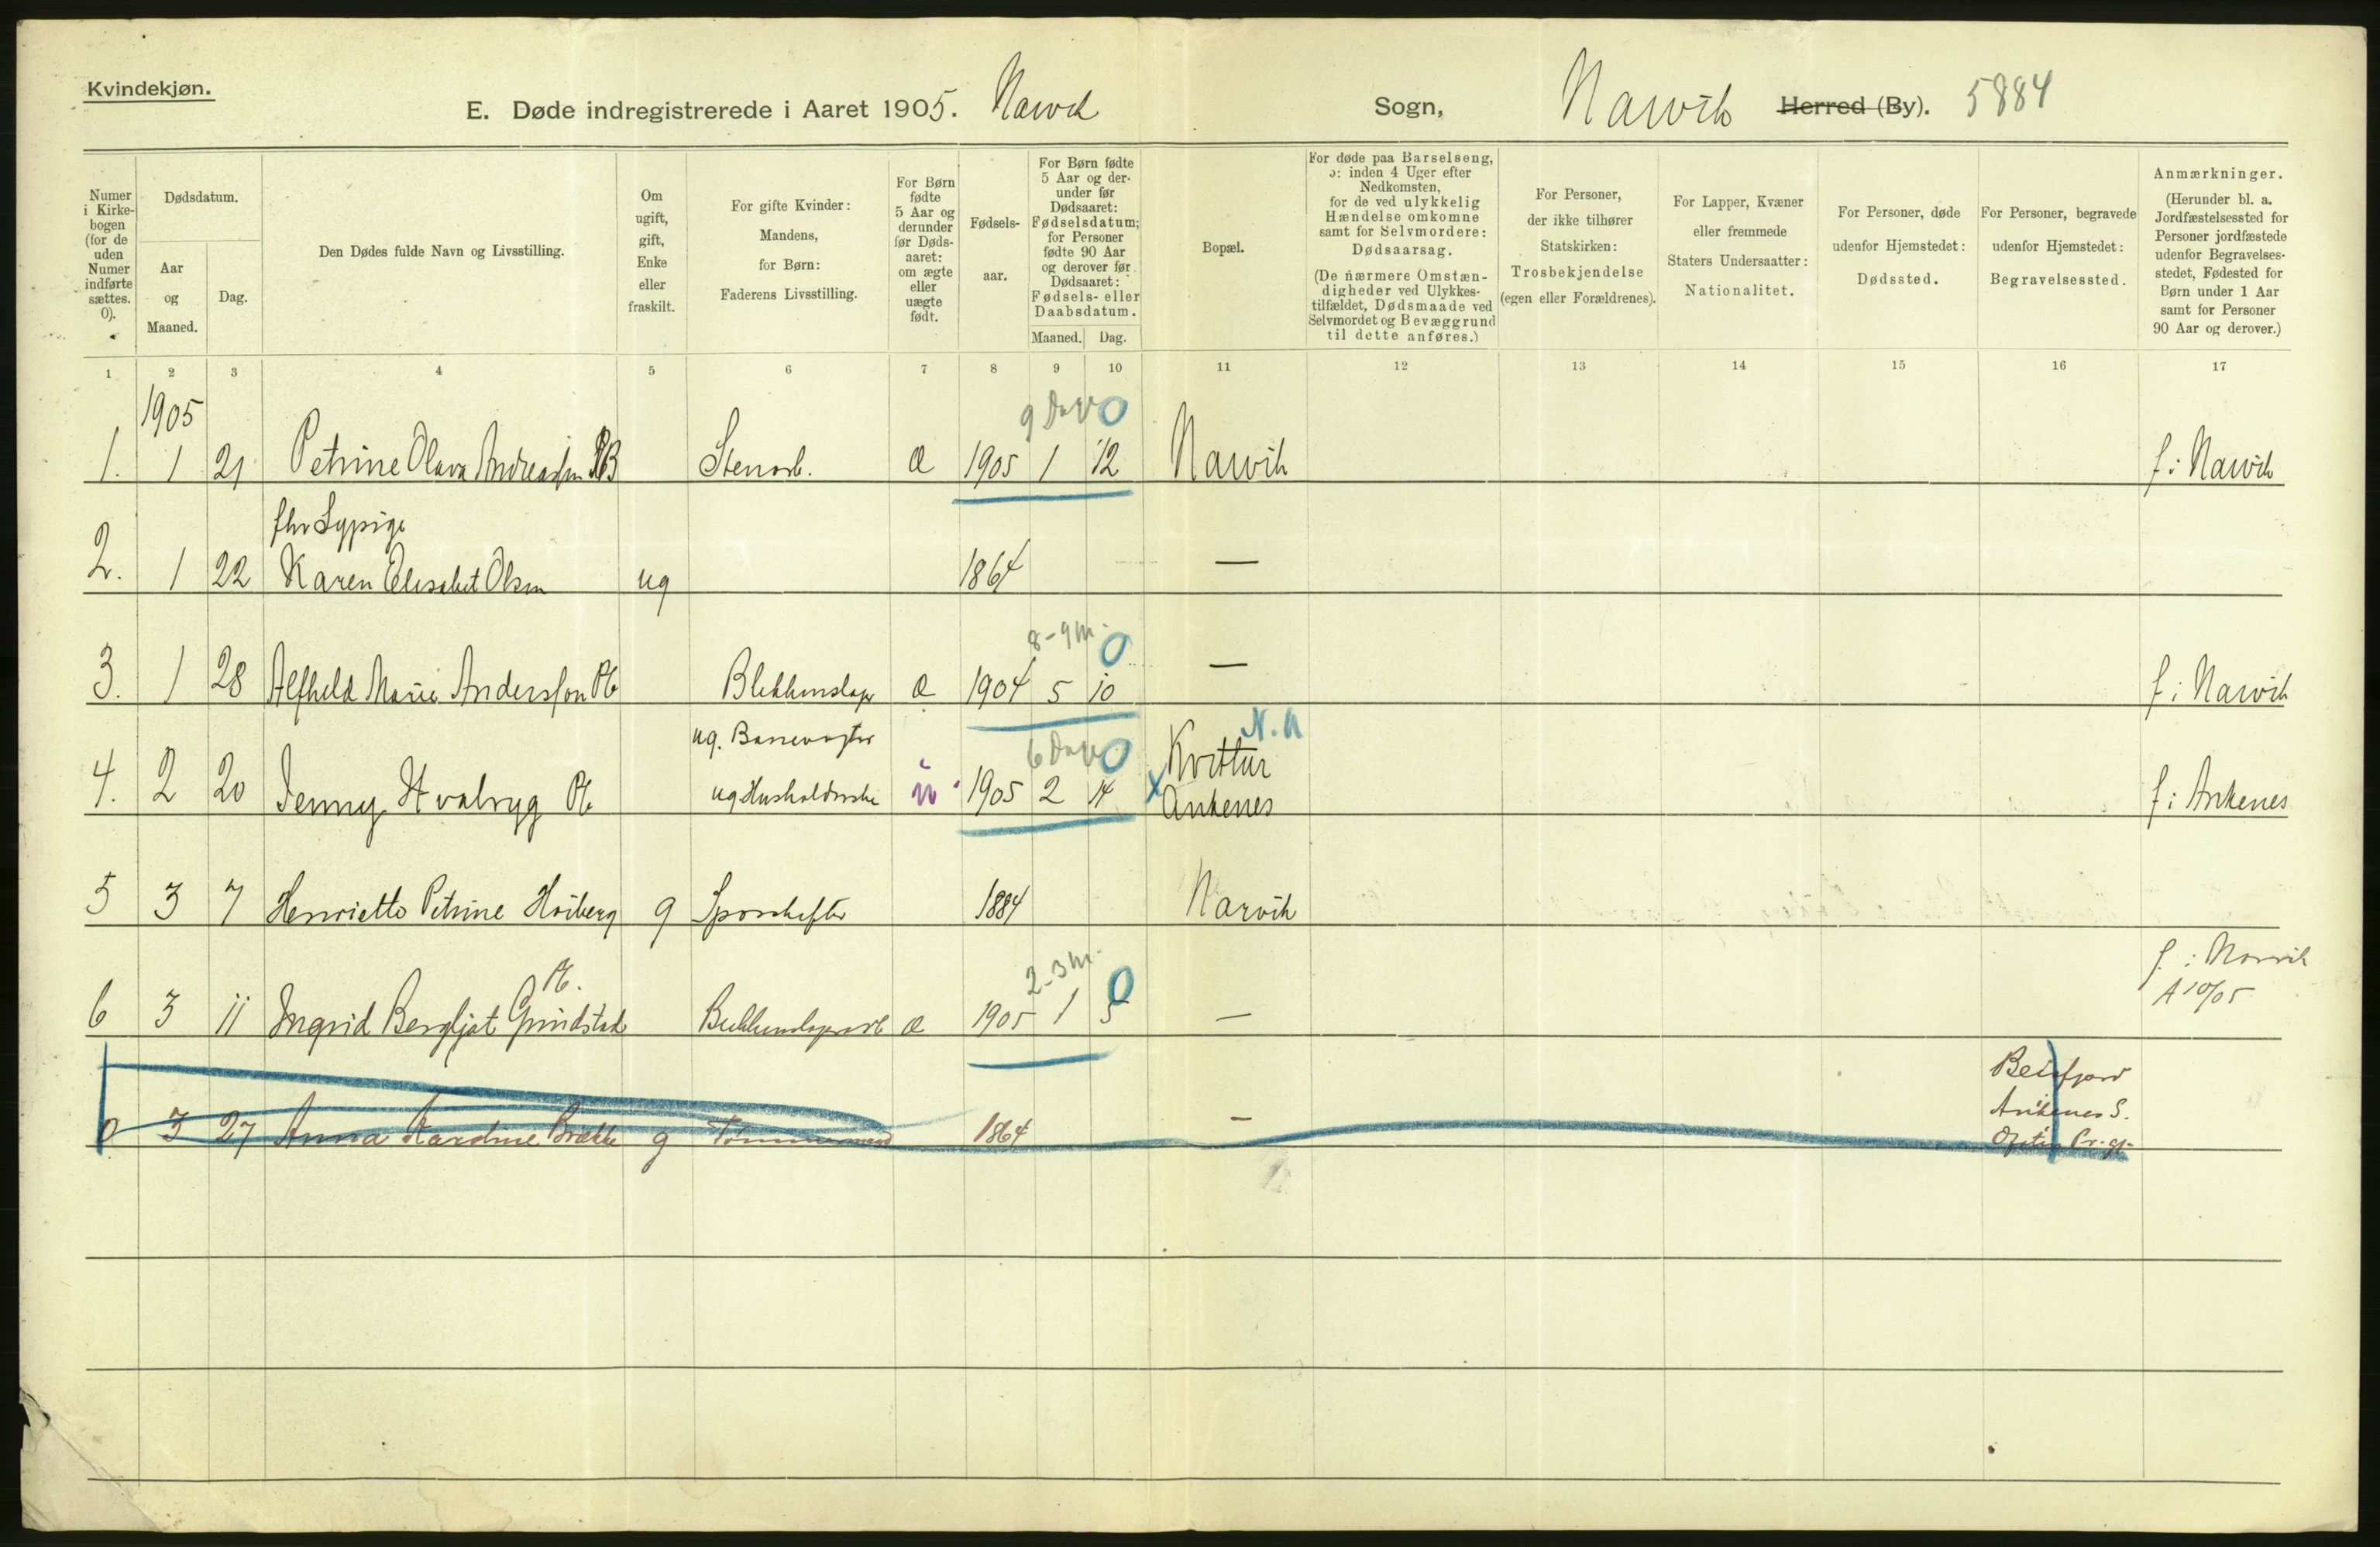 Kvindekjøn.
E. Døde indregistrerede i Aaret 1905. Narvik Sogn, Narvik Herred (By). 5884
Numer i Kirkebogen (for de uden Numer indførte sættes. 0).
Dødsdatum.
Aar og Maaned.
Dag.
Den Dødes fulde Navn og Livsstilling.
Om ugift, gift, Enke eller fraskilt.
For gifte Kvinder: Mandens, for Børn: Faderens Livsstilling.
For Børn fødte 5 Aar og derunder før Dødsaaret: om ægte eller uægte født.
Fødselsaar.
For Børn fødte 5 Aar og derunder før Dødsaaret: Fødselsdatum; for Personer fødte 90 Aar og derover før Dødsaaret: Fødsels- eller Daabsdatum.
Maaned. Dag.
Bopæl.
For døde paa Barselseng, ɔ: inden 4 Uger efter Nedkomsten, for de ved ulykkelig Hændelse omkomne samt for Selvmordere: Dødsaarsag.
(De nærmere Omstændigheder ved Ulykkestilfældet, Dødsmaade ved Selvmordet og Bevæggrund til dette anføres.)
For Personer, der ikke tilhører Statskirken: Trosbekjendelse (egen eller Forældrenes).
For Lapper, Kvæner eller fremmede Staters Undersaatter: Nationalitet.
For Personer, døde udenfor Hjemstedet: Dødssted.
For Personer, begravede udenfor Hjemstedet: Begravelsessted.
Anmærkninger.
(Herunder bl. a. Jordfæstelsessted for Personer jordfæstede udenfor Begravelsesstedet, Fødested for Børn under 1 Aar samt for Personer 90 Aar og derover.)
1 2 3 4 5 6 7 8 9 10 11 12 13 14 15 16 17
1905
9 Dage 0
1. 1 21 Petrine Olava Andreassen PB Stenarb. æ 1905 1 12 Narvik f: Narvik
fhv Sypige
2. 1 22 Karen Elisabet Olsen ug 1864 —
8-9 m. 0
3. 1 28 Alfhild Marie Andersson Pb Blikkenslager æ 1904 5 10 — f: Narvik
ug. 6 Dage 0 Kvittur N.N
4. 2 20 Jenny Hvalryg Pb ug Husholderske u 1905 2 14 x Ankenes f: Ankenes
5 3 7 Henriette Petrine Høiberg g Sporskifter 1884 Narvik
Pb. 2-3 m. 0 f. i Narvik
6 3 11 Ingrid Bergljot Grindstad æ 1905 1 5 — A 10/05
Beisfjord
Ankenes S.
0 3 27 Anna g Tømmermand 1864 — Ofoten Pr.gj.